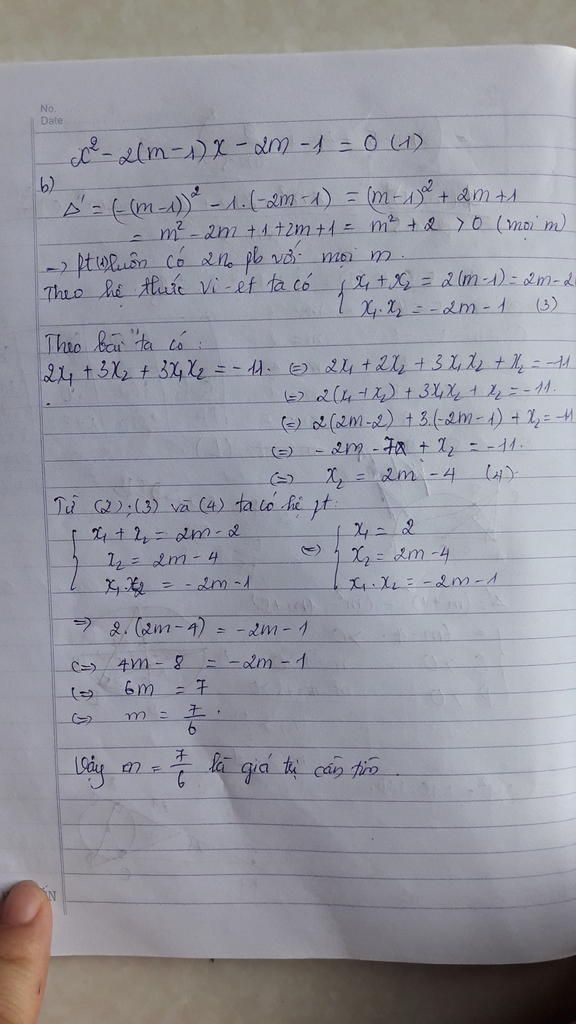 No.
Date
x² - 2(m-1)x - 2m - 1 = 0 (1)
b)
Δ' = (-(m-1))² - 1.(-2m-1) = (m-1)² + 2m+1
= m² - 2m + 1 + 2m + 1 = m² + 2 > 0 (mọi m)
-> pt(1) luôn có 2no pb với mọi m.
Theo hệ thức Vi-et ta có { x₁ + x₂ = 2(m-1) = 2m-2
x₁.x₂ = -2m-1 (3)
Theo bài ta có:
2x₁ + 3x₂ + 3x₁x₂ = -11. (=) 2x₁ + 2x₂ + 3x₁x₂ + x₂ = -11
(=) 2(x₁+x₂) + 3x₁x₂ + x₂ = -11.
(=) 2(2m-2) + 3.(-2m-1) + x₂ = -11
(=) -2m - 7 + x₂ = -11.
(=) x₂ = 2m - 4 (4).
Từ (2);(3) và (4) ta có hệ pt:
{ x₁ + x₂ = 2m-2 (=) { x₁ = 2
x₂ = 2m-4 x₂ = 2m-4
x₁.x₂ = -2m-1 x₁.x₂ = -2m-1
=> 2.(2m-4) = -2m-1
(=) 4m - 8 = -2m-1
(=) 6m = 7
(=) m = 7/6.
Vậy m = 7/6 là giá trị cần tìm.